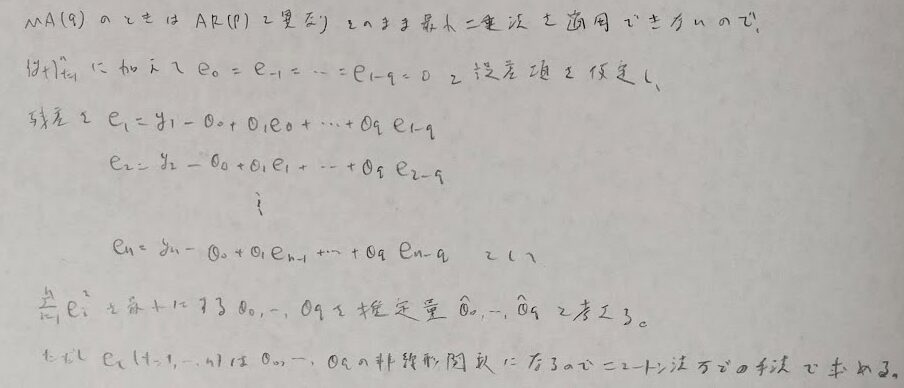 MA(q) のときは AR(p) と異なりそのまま最小二乗法を適用できないので、
{yt}ⁿt=1 に加えて e₀ = e₋₁ = ⋯ = e₁₋q = 0 と誤差項を仮定し、
残差を e₁ = y₁ − θ₀ + θ₁e₀ + ⋯ + θq e₁₋q
e₂ = y₂ − θ₀ + θ₁e₁ + ⋯ + θq e₂₋q
⋮
en = yn − θ₀ + θ₁en₋₁ + ⋯ + θq en₋q とし、
ⁿΣi=1 ei² を最小にする θ₀, ⋯, θq を推定量 θ̂₀, ⋯, θ̂q と考える。
ただし et (t=1, ⋯, n) は θ₀, ⋯, θq の非線形関数になるのでニュートン法などの手法で求める。